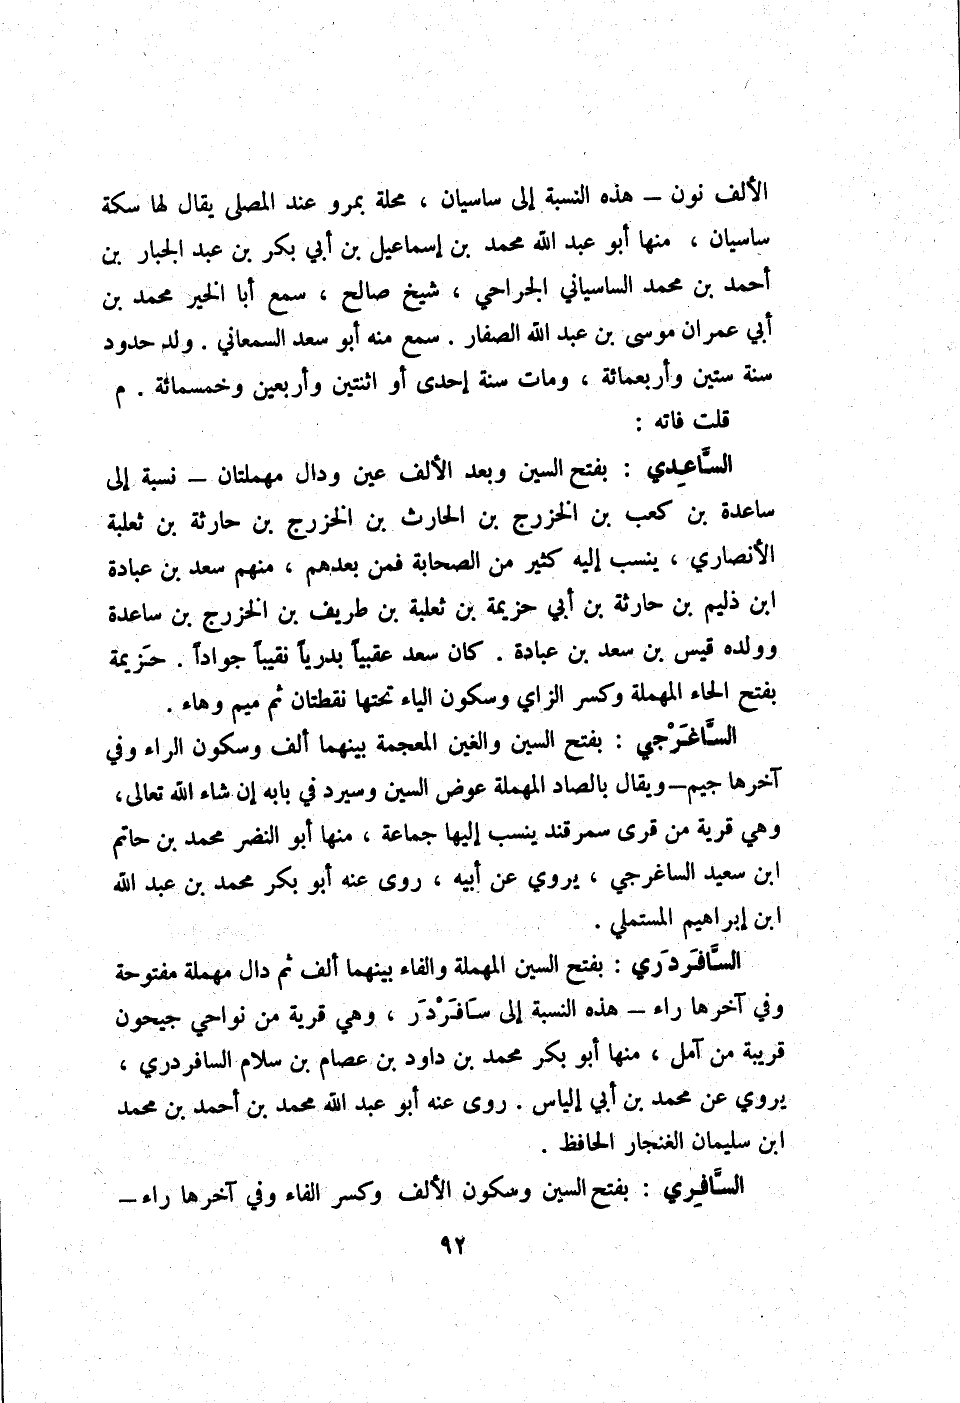 الألف نون – هذه النسبة إلى ساسيان ، محلة بمرو عند المصلى يقال لها سكة
ساسيان ، منها أبو عبد الله محمد بن إسماعيل بن أبي بكر بن عبد الجبار بن
أحمد بن محمد الساسياني الجراحي ، شيخ صالح ، سمع أبا الخير محمد بن
أبي عمران موسى بن عبد الله الصفار . سمع منه أبو سعد السمعاني . ولد حدود
سنة ستين وأربعمائة ، ومات سنة إحدى أو اثنتين وأربعين وخمسمائة . م
قلت فاته :
السَّاعِدي : بفتح السين وبعد الألف عين ودال مهملتان – نسبة إلى
ساعدة بن كعب بن الخزرج بن الحارث بن الخزرج بن حارثة بن ثعلبة
الأنصاري ، ينسب إليه كثير من الصحابة فمن بعدهم ، منهم سعد بن عبادة
ابن ذليم بن حارثة بن أبي حزيمة بن ثعلبة بن طريف بن الخزرج بن ساعدة
وولده قيس بن سعد بن عبادة . كان سعد عقبياً بدرياً نقيباً جواداً . حَزيمة
بفتح الحاء المهملة وكسر الزاي وسكون الياء تحتها نقطتان ثم ميم وهاء .
السَّاغَرْجي : بفتح السين والغين المعجمة بينهما ألف وسكون الراء وفي
آخرها جيم–ويقال بالصاد المهملة عوض السين وسيرد في بابه إن شاء الله تعالى،
وهي قرية من قرى سمرقند ينسب إليها جماعة ، منها أبو النضر محمد بن حاتم
ابن سعيد الساغرجي ، يروي عن أبيه ، روى عنه أبو بكر محمد بن عبد الله
ابن إبراهيم المستملي .
السَّافَردَري : بفتح السين المهملة والفاء بينهما ألف ثم دال مهملة مفتوحة
وفي آخرها راء – هذه النسبة إلى سَافَرْدَر ، وهي قرية من نواحي جيحون
قريبة من آمل ، منها أبو بكر محمد بن داود بن عصام بن سلام السافردري ،
يروي عن محمد بن أبي إلياس . روى عنه أبو عبد الله محمد بن أحمد بن محمد
ابن سليمان الغنجار الحافظ .
السَّافِري : بفتح السين وسكون الألف وكسر الفاء وفي آخرها راء –
٩٢